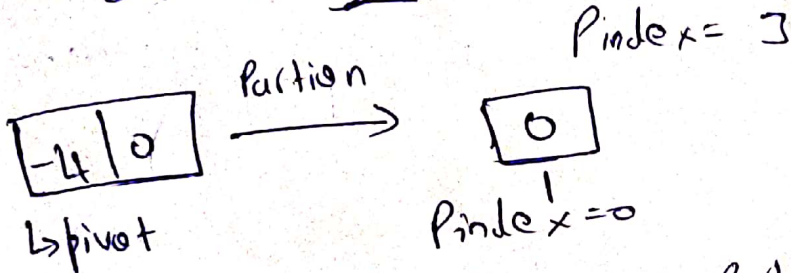 Pindex = 3
Partion
-4 | 0
0
↳ pivot
Pindex = 0